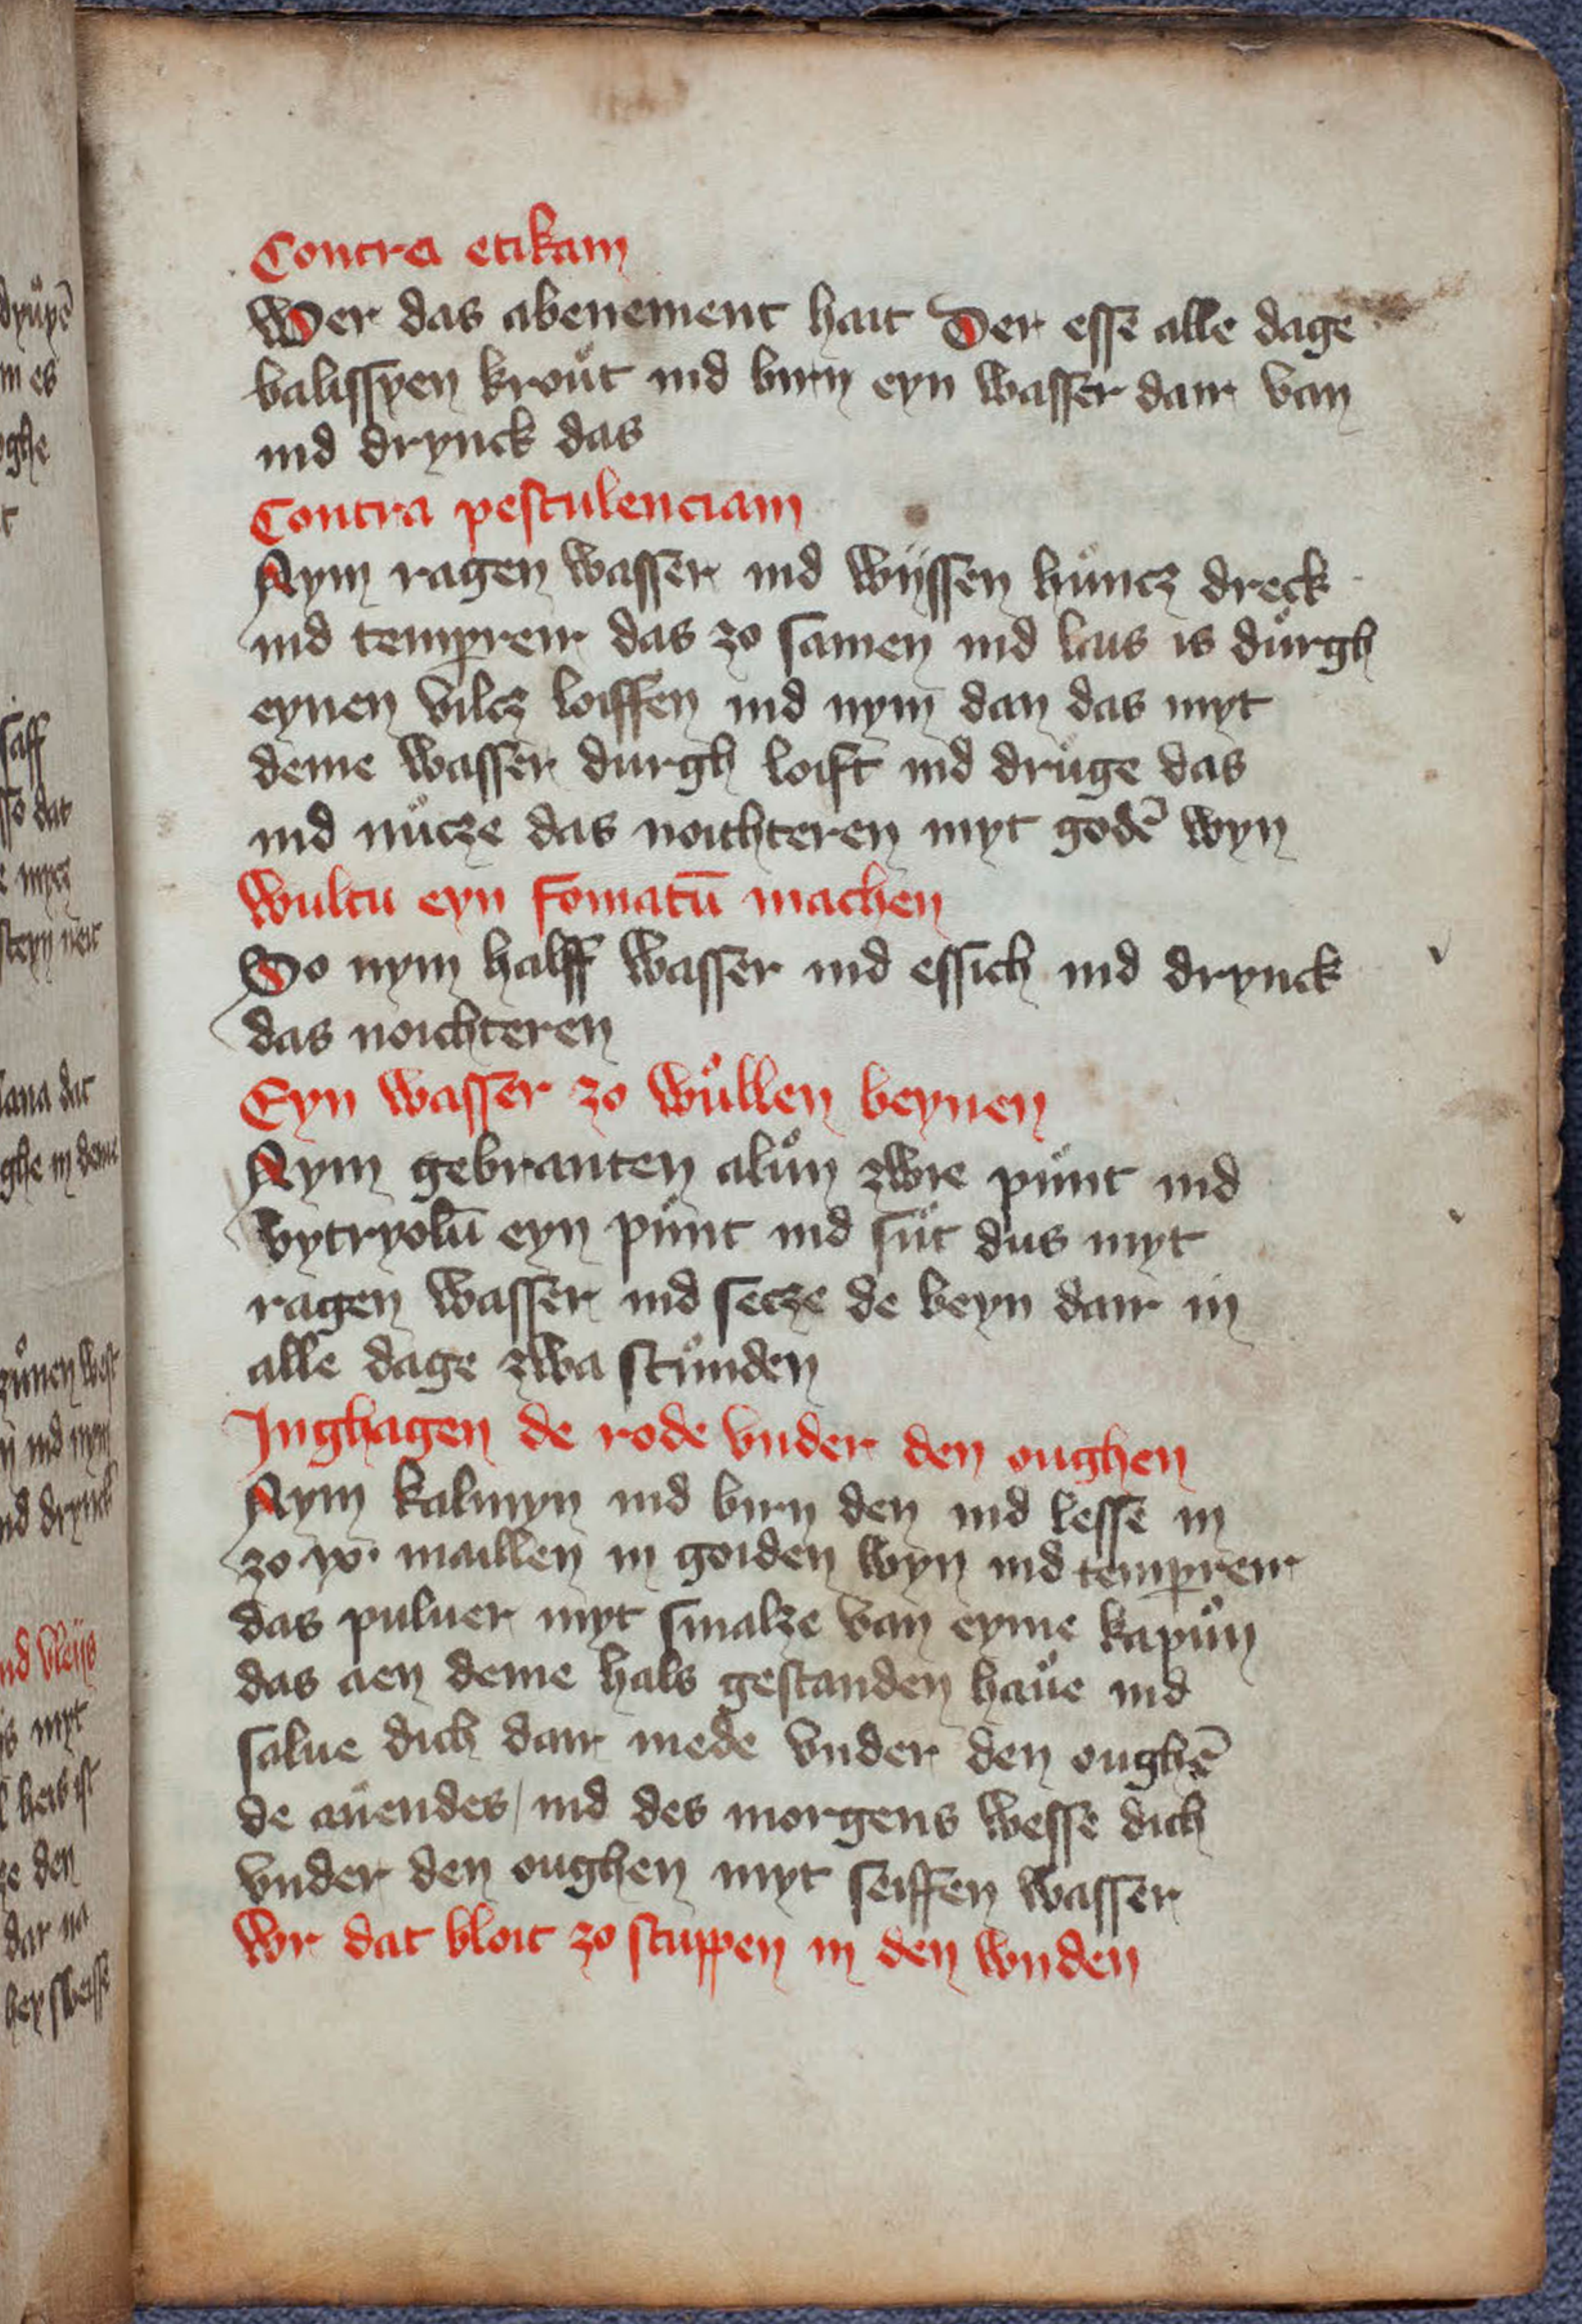 Contra etikam
Wer das abenement hait Der essē alle dage
balissyen kroůt ind birn eyn wasser dair van
ind drynck das
Contra pestulenciam
Nym ragen wasser ind wijssen hůntz dreck
ind temperеir das zo samen ind lais is důrgh
eynen viltz loiffen ind nym dan das myt
deme wasser durgh loift ind drůge das
ind nůtze das noichteren myt godē wyn
Wultu eyn fomatū machen
So nym halff wasser ind essich ind drynck
das noichteren
Eyn wasser zo wůllen beynen
Nym gebranten alůn zwie půnt ind
vytryolū eyn půnt ind sůt dus myt
ragen wasser ind setze de beyn dair in
alle dage zwa stůnden
Inghagen de rode vnder den oughen
Nym kalmyn ind birn den ind lessē in
zo ix· maillen in goiden wyn ind tempereir
das puluer myt smalze van eyme kapůn
das aen deme hals gestanden haůe ind
salue dich dair mede vnder den oughē
de aůendes / ind des morgens wesse dich
vnder den oughen myt seiffen wasser
Wr dat bloit zo stuppen in den wnden